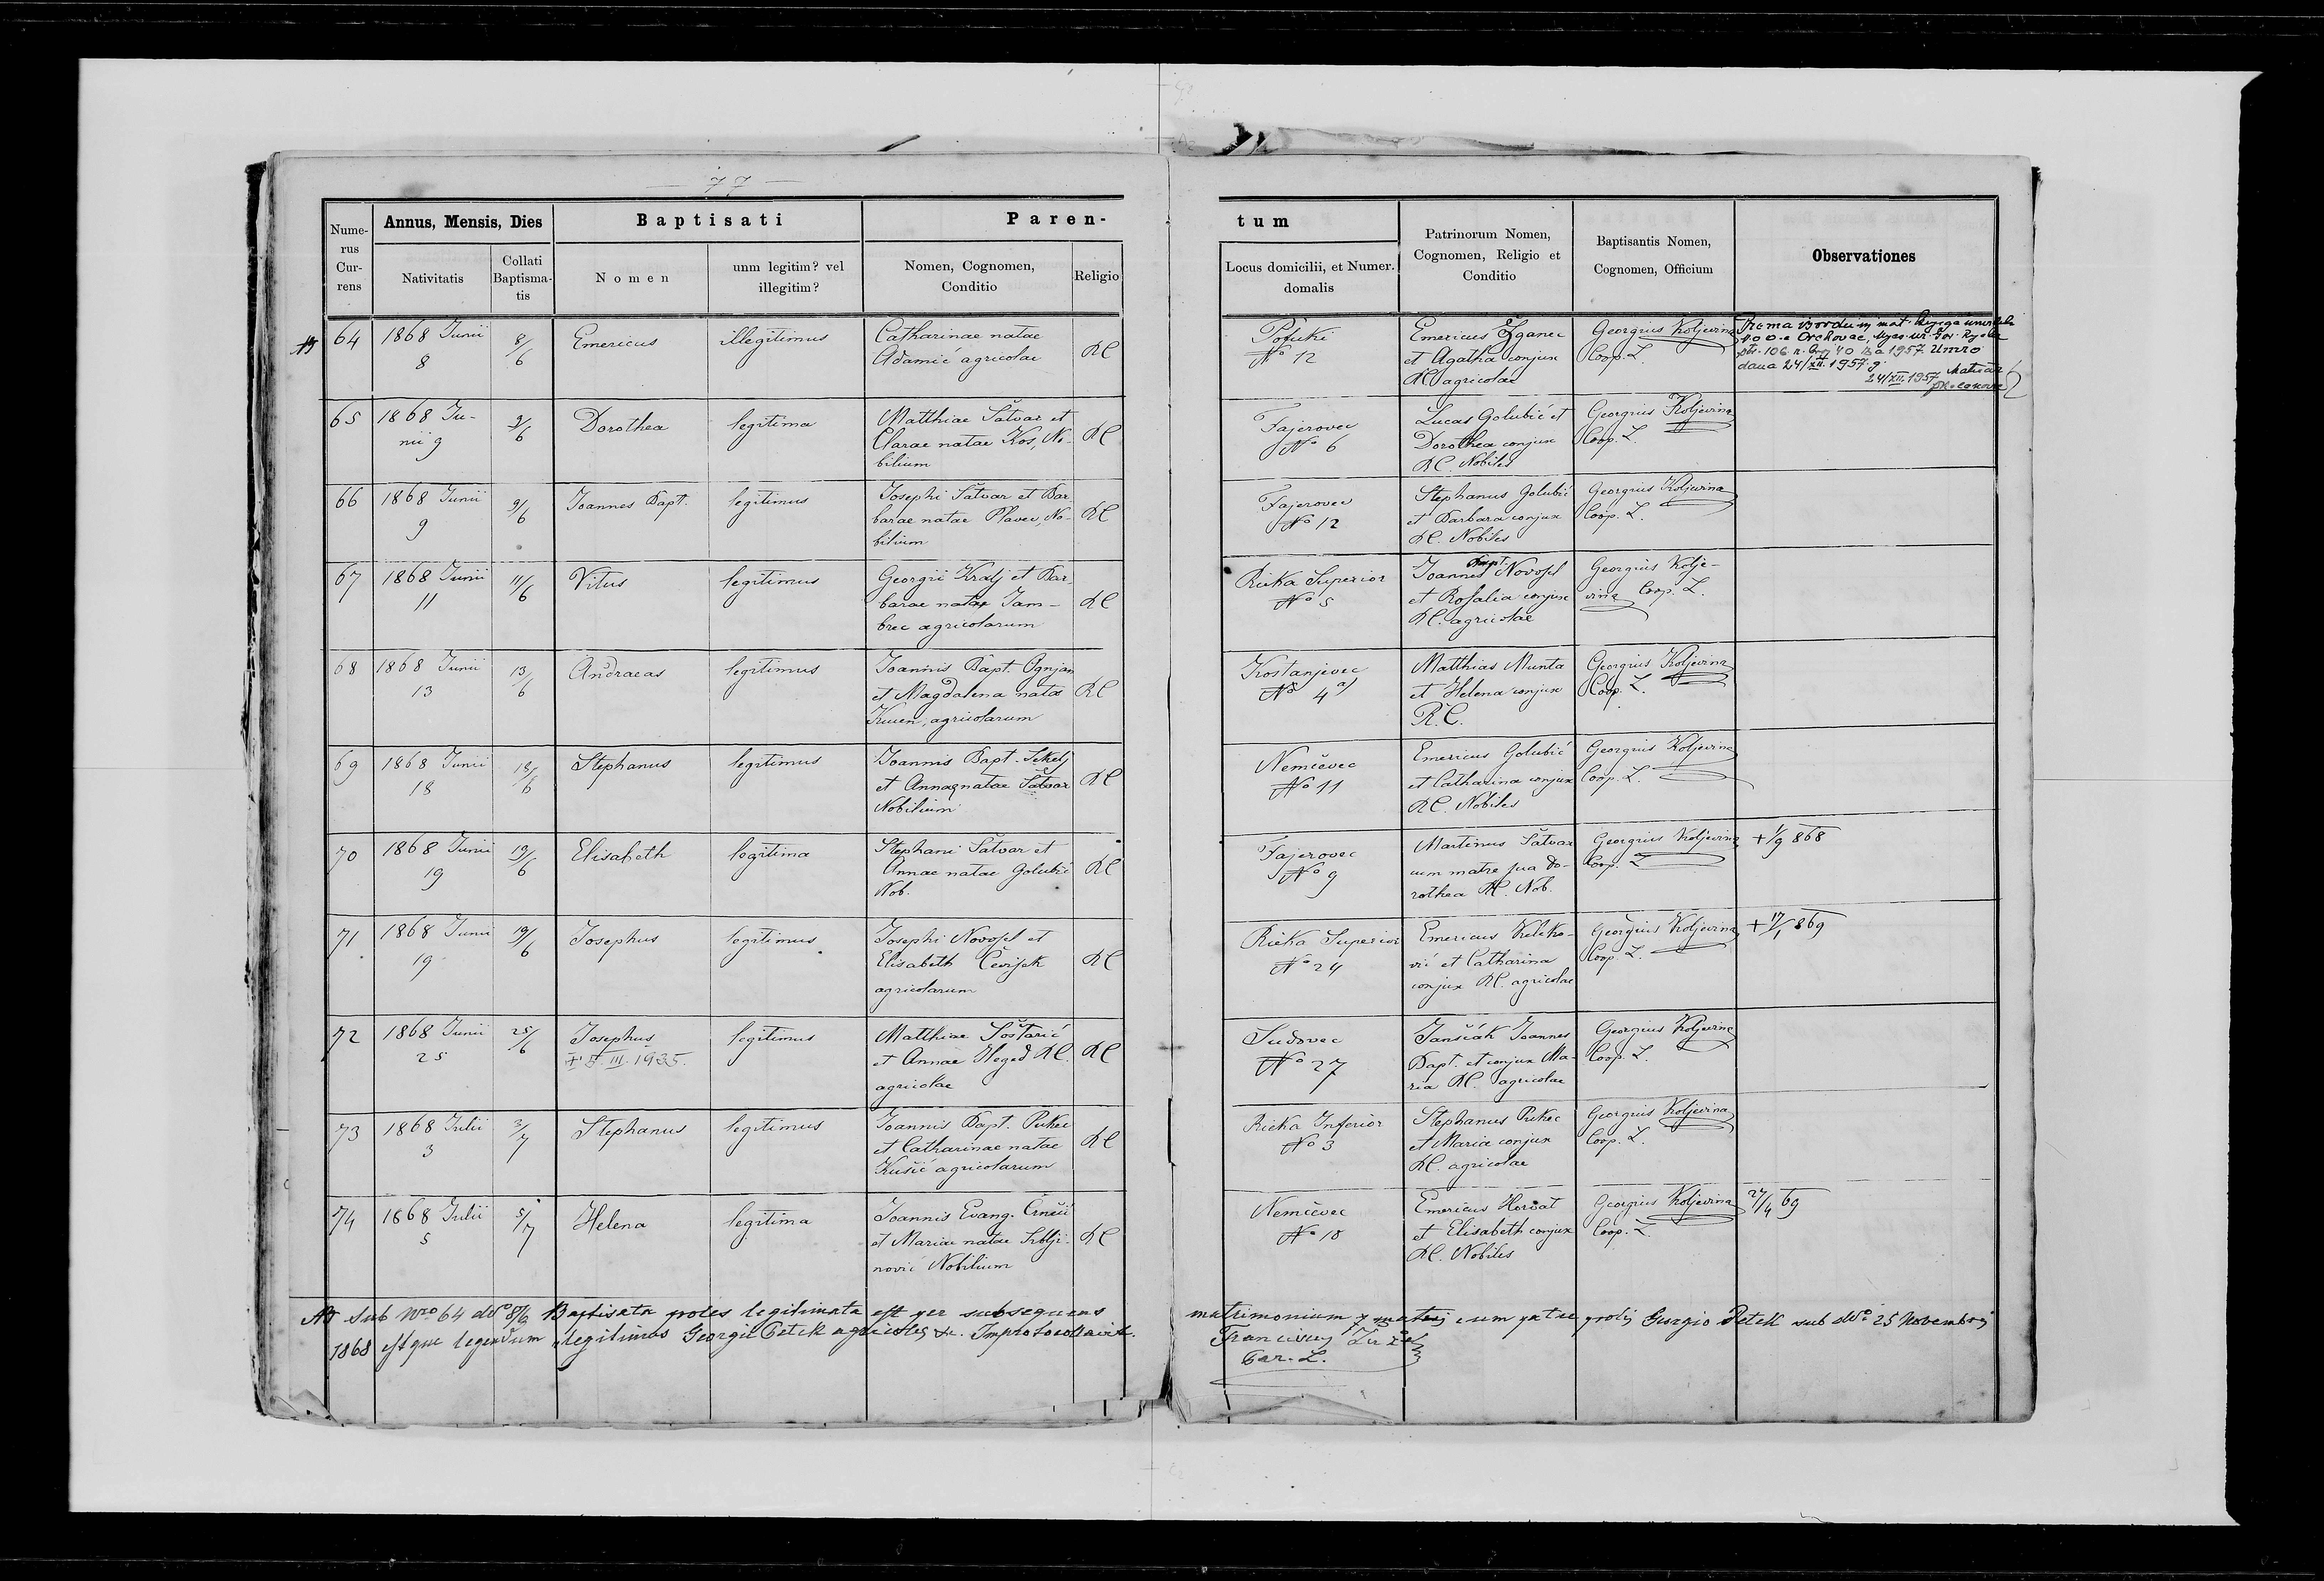 77
Numerus Currens
Annus, Mensis, Dies
Baptisati
Paren-
tum
Nativitatis
Collati Baptismatis
Nomen
unm legitim? vel illegitim?
Nomen, Cognomen, Conditio
Religio
Locus domicilii, et Numer. domalis
Patrinorum Nomen, Cognomen, Religio et Conditio
Baptisantis Nomen, Cognomen, Officium
Observationes
NB 64 1868 Junii 8/6 Emericus illegitimus Catharinae natae Pofuki Emericus Georgius Koljevina
8 Adamić agricolae RC No 12 et Agatha conjux Coop. L.
RC agricolae
Umro
dana 24/XII. 1957 g.
24/XII. 1957 Matičar
65 1868 Ju- 9/6 Dorothea legitima Matthiae Šatvar et Fajerovec Lucas Golubić et Georgius Koljevina
nii 9 Clarae natae Kos, No- RC No 6 Dorothea conjux Coop. L.
bilium RC. Nobiles
66 1868 Junii 9/6 Joannes Bapt. legitimus Josephi Šatvar et Bar- Fajerovec Stephanus Golubić Georgius Koljevina
9 barae natae Plavec, No- RC No 12 et Barbara conjux Coop. L.
bilium RC. Nobiles
67 1868 Junii 11/6 Vitus legitimus Georgii Kralj et Bar- Rieka Superior Joannes Bapt. Novosel Georgius Kolje-
11 barae natae Jam- RC No 5 et Rosalia conjux vina Coop. L.
brec agricolarum RC. agricolae
68 1868 Junii 13/6 Andraeas legitimus Joannis Bapt. Ognjan Kostanjevec Matthias Munta Georgius Koljevina
13 et Magdalena natae RC No 4 a) et Helena conjux Coop. L.
agricolarum R.C.
69 1868 Junii 18/6 Stephanus legitimus Joannis Bapt. Sekelj Nemčevec Emericus Golubić Georgius Koljevina
18 et Annae natae Šatvar RC No 11 et Catharina conjux Coop. L.
Nobilium RC. Nobiles
70 1868 Junii 19/6 Elisabeth legitima Stephani Šatvar et Fajerovec Martinus Šatvar Georgius Koljevina + 1/9 868
19 Annae natae Golubić RC No 9 cum matre sua Do- Coop. L.
Nob. rothea RC. Nob.
71 1868 Junii 19/6 Josephus legitimus Josephi Novosel et Rieka Superior Emericus Keleko- Georgius Koljevina + 17/1 869
19 Elisabeth RC No 24 vić et Catharina Coop. L.
agricolarum conjux RC. agricolae
72 1868 Junii 25/6 Josephus legitimus Matthiae Šoštarić Sudovec Janšiák Joannes Georgius Koljevina
25 III. 1935. et Annae Heged RC. RC No 27 Bapt. et conjux Ma- Coop. L.
agricolae ria RC. agricolae
73 1868 Julii 3/7 Stephanus legitimus Joannis Bapt. Pukec Rieka Inferior Stephanus Pukec Georgius Koljevina
3 et Catharinae natae RC No 3 et Maria conjux Coop. L.
Kušić agricolarum RC. agricolae
74 1868 Julii 5/7 Helena legitima Joannis Evang. Črnčić Nemčevec Emericus Horvat Georgius Koljevina 27/4 69
5 et Mariae natae Srblji- RC No 18 et Elisabeth conjux Coop. L.
nović Nobilium RC. Nobiles
NB Sub Nro 64 ddo 8/6 Baptisata proles legitimata est per subsequens matrimonium matris cum patre prolis Georgio Petek sub ddo 25 Novembris
1868 estque legendum legitimus Georgii Petek agricolae Improtocollavit Franciscus
Par. L.